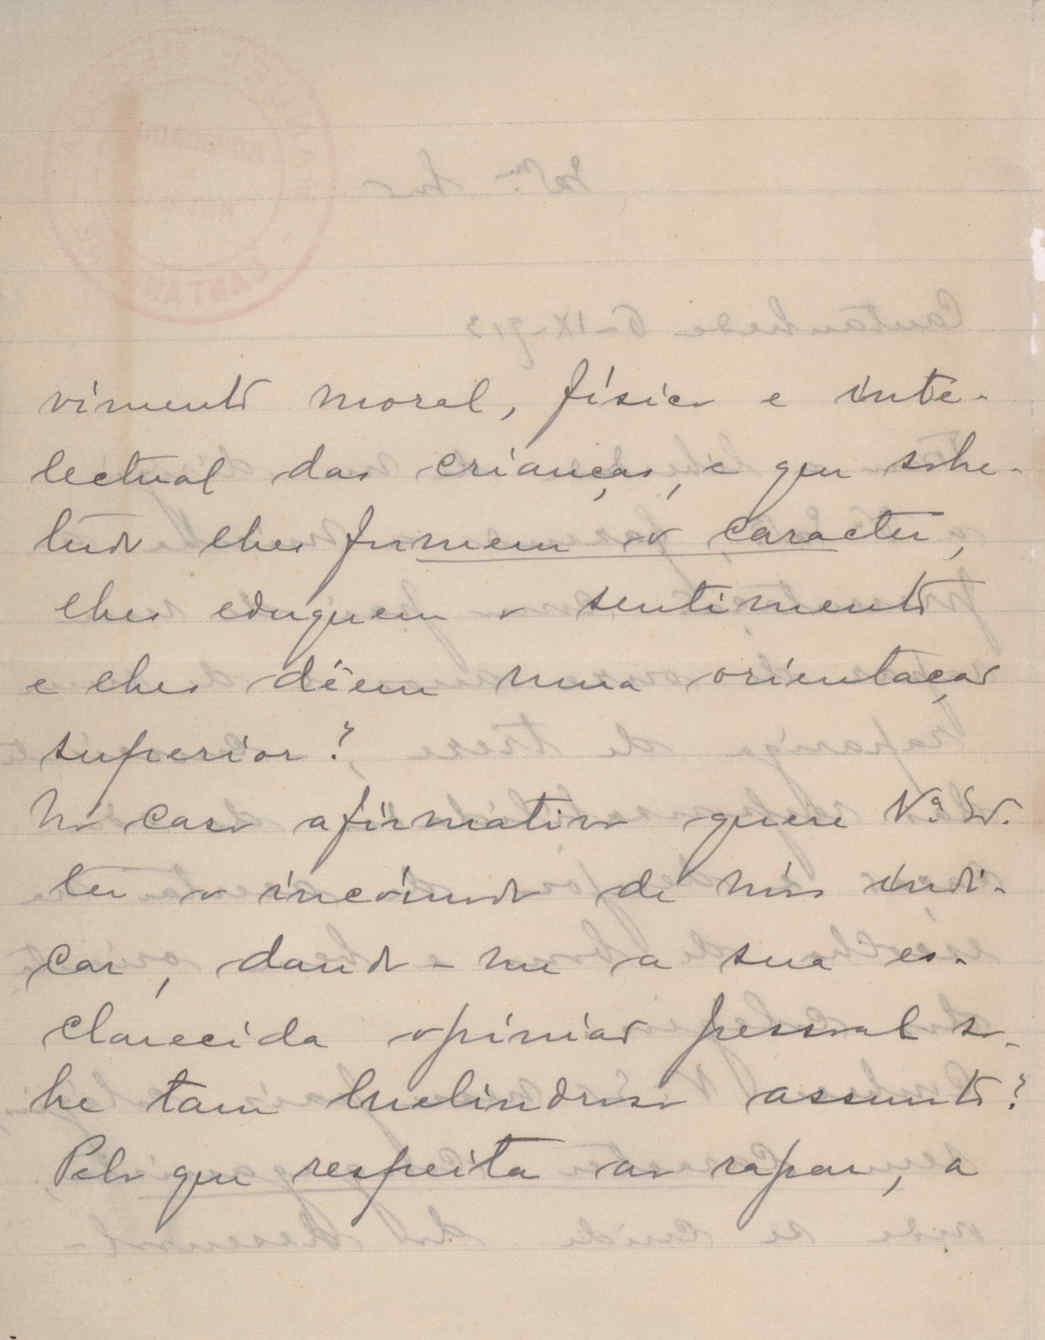 vimento moral, físico e inte-
lectual das crianças, e que sobre-
tudo lhes formem o caracter,
lhes eduquem o sentimento
e lhes dêem uma orientação
superior?
No caso afirmativo quere V.ª Ex.ª
ter o incómodo de nos indi-
car, dando-me a sua es-
clarecida opinião pessoal so-
bre tam melindroso assunto?
Pelo que respeita ao rapaz, a